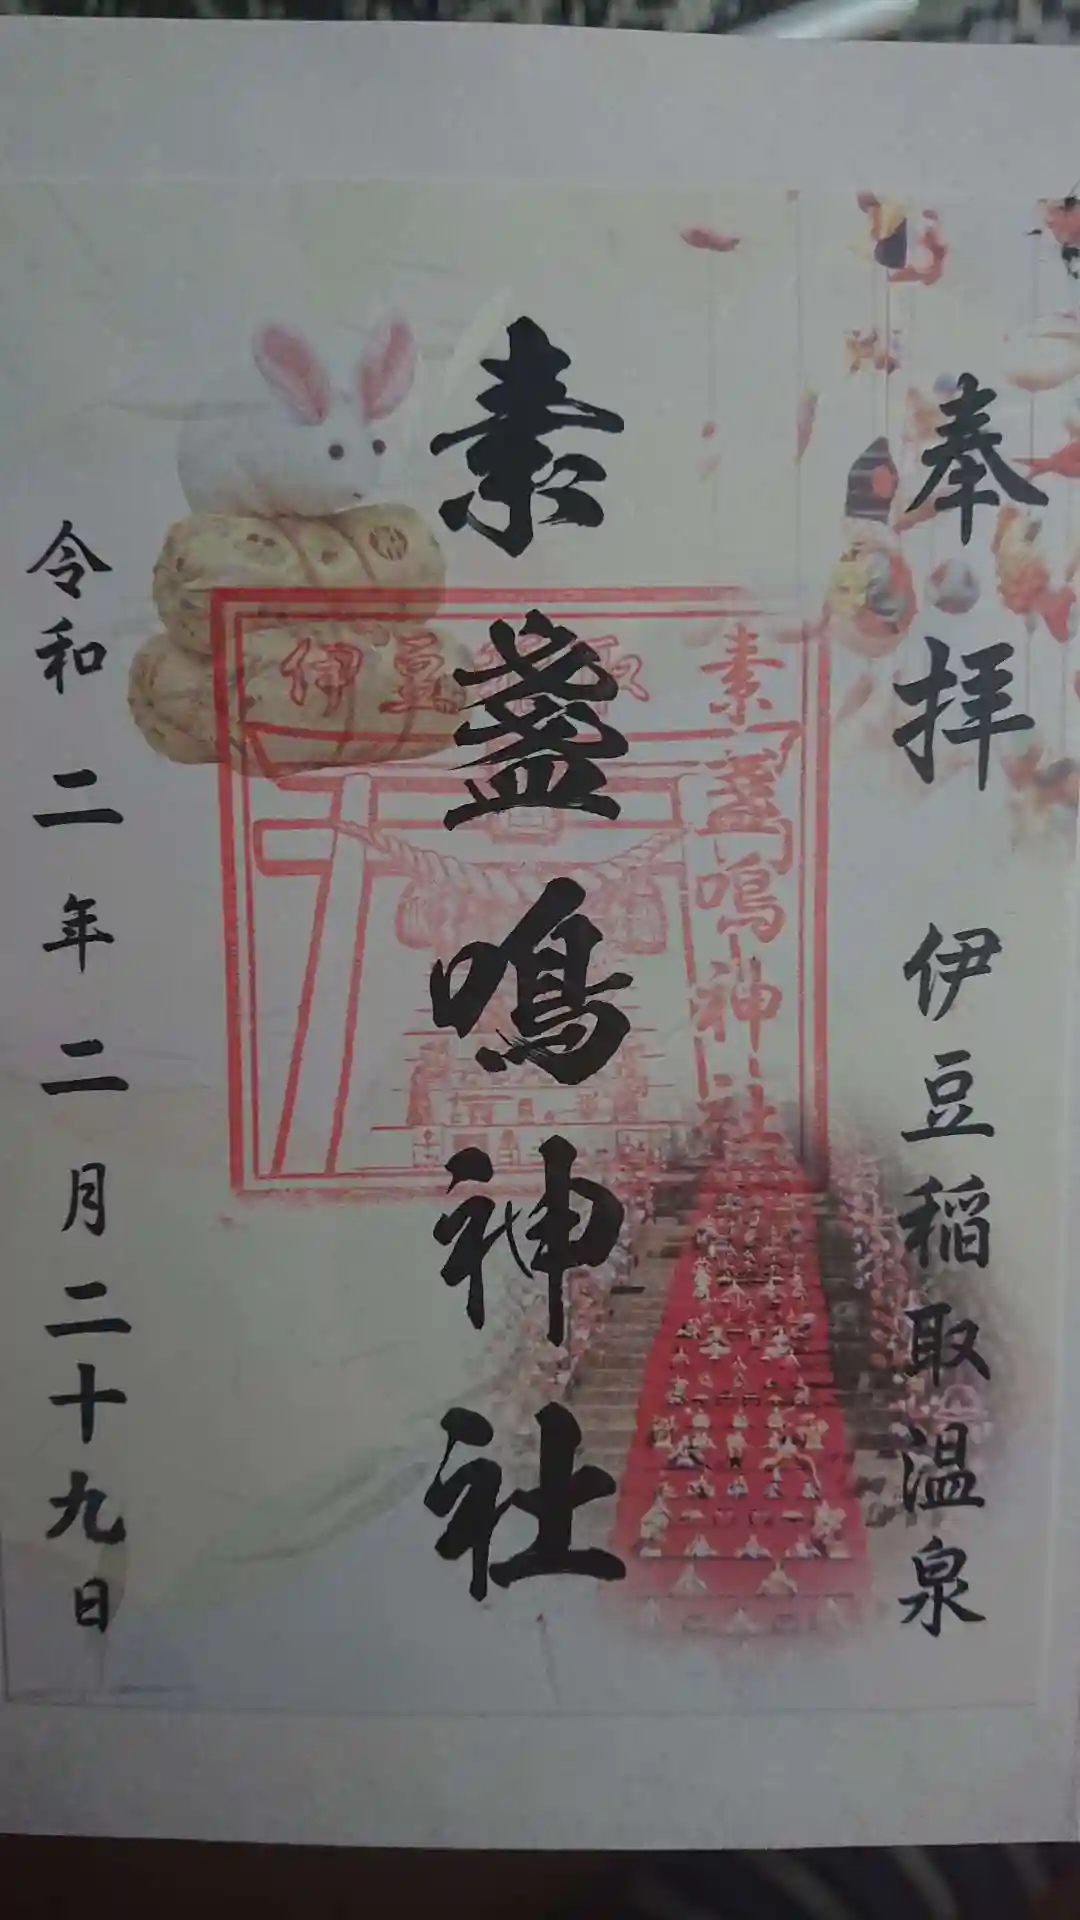 奉拝 伊豆稲取温泉
素盞嗚神社
令和二年二月二十九日
伊豆稲取
素盞嗚神社